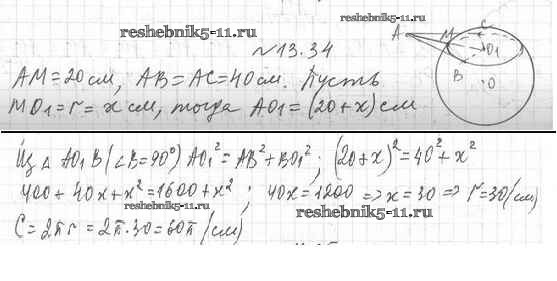 reshebnik5-11.ru
reshebnik5-11.ru
№13.34
A M C O₁ B O
AM=20см, AB=AC=40см. Пусть
MO₁=r=x см, тогда AO₁=(20+x)см
Из △ AO₁B (∠B=90°) AO₁²=AB²+BO₁²; (20+x)²=40²+x²
400+40x+x²=1600+x²; 40x=1200 => x=30 => r=30(см)
reshebnik5-11.ru
reshebnik5-11.ru
C=2πr=2π·30=60π(см)